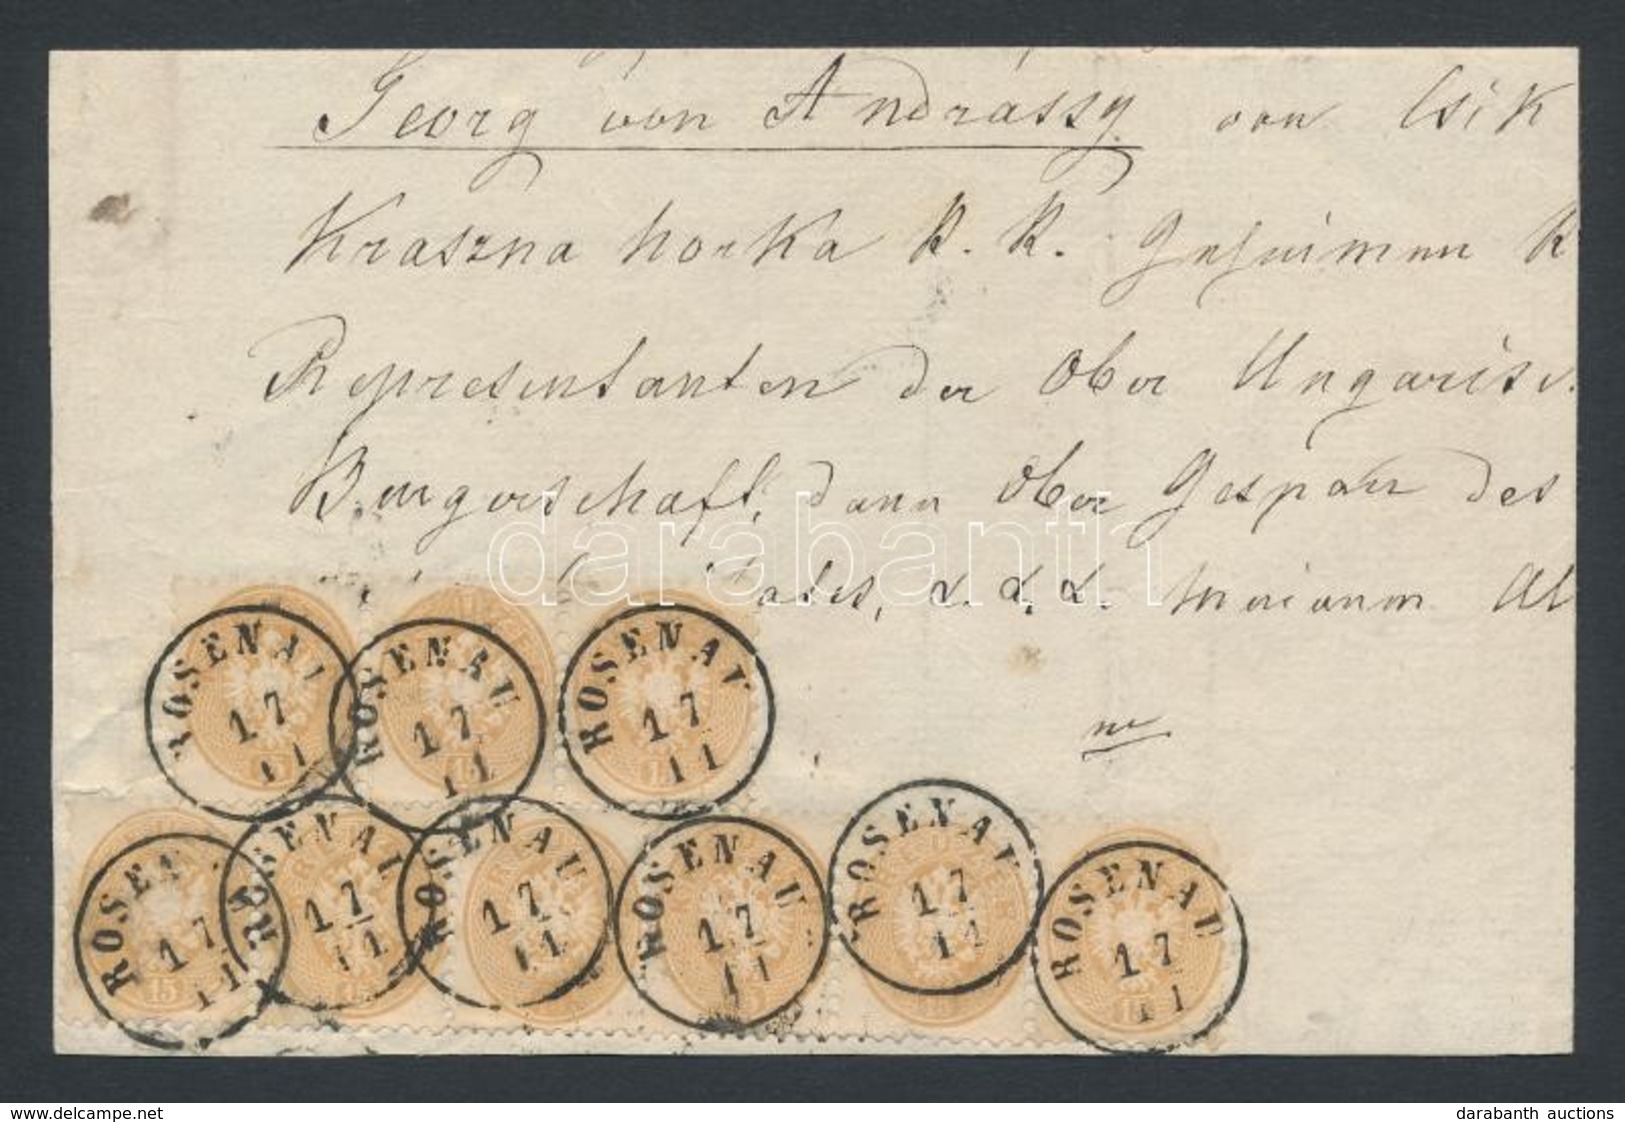 Georg von Andrássy von Csik
Kraszna horka K. K. Geheimen R
Representanten der Ober Ungarisc
Burgerschaft, dann Ober Gespan des
ates, &. &. &. meinem Al
ROSENAU 17 11
ROSENAU 17 11
ROSENAU 17 11
ROSENAU 17 11
ROSENAU 17 11
ROSENAU 17 11
ROSENAU 17 11
ROSENAU 17 11
ROSENAU 17 11
15
darabanth
www.delcampe.net
darabanth auctions